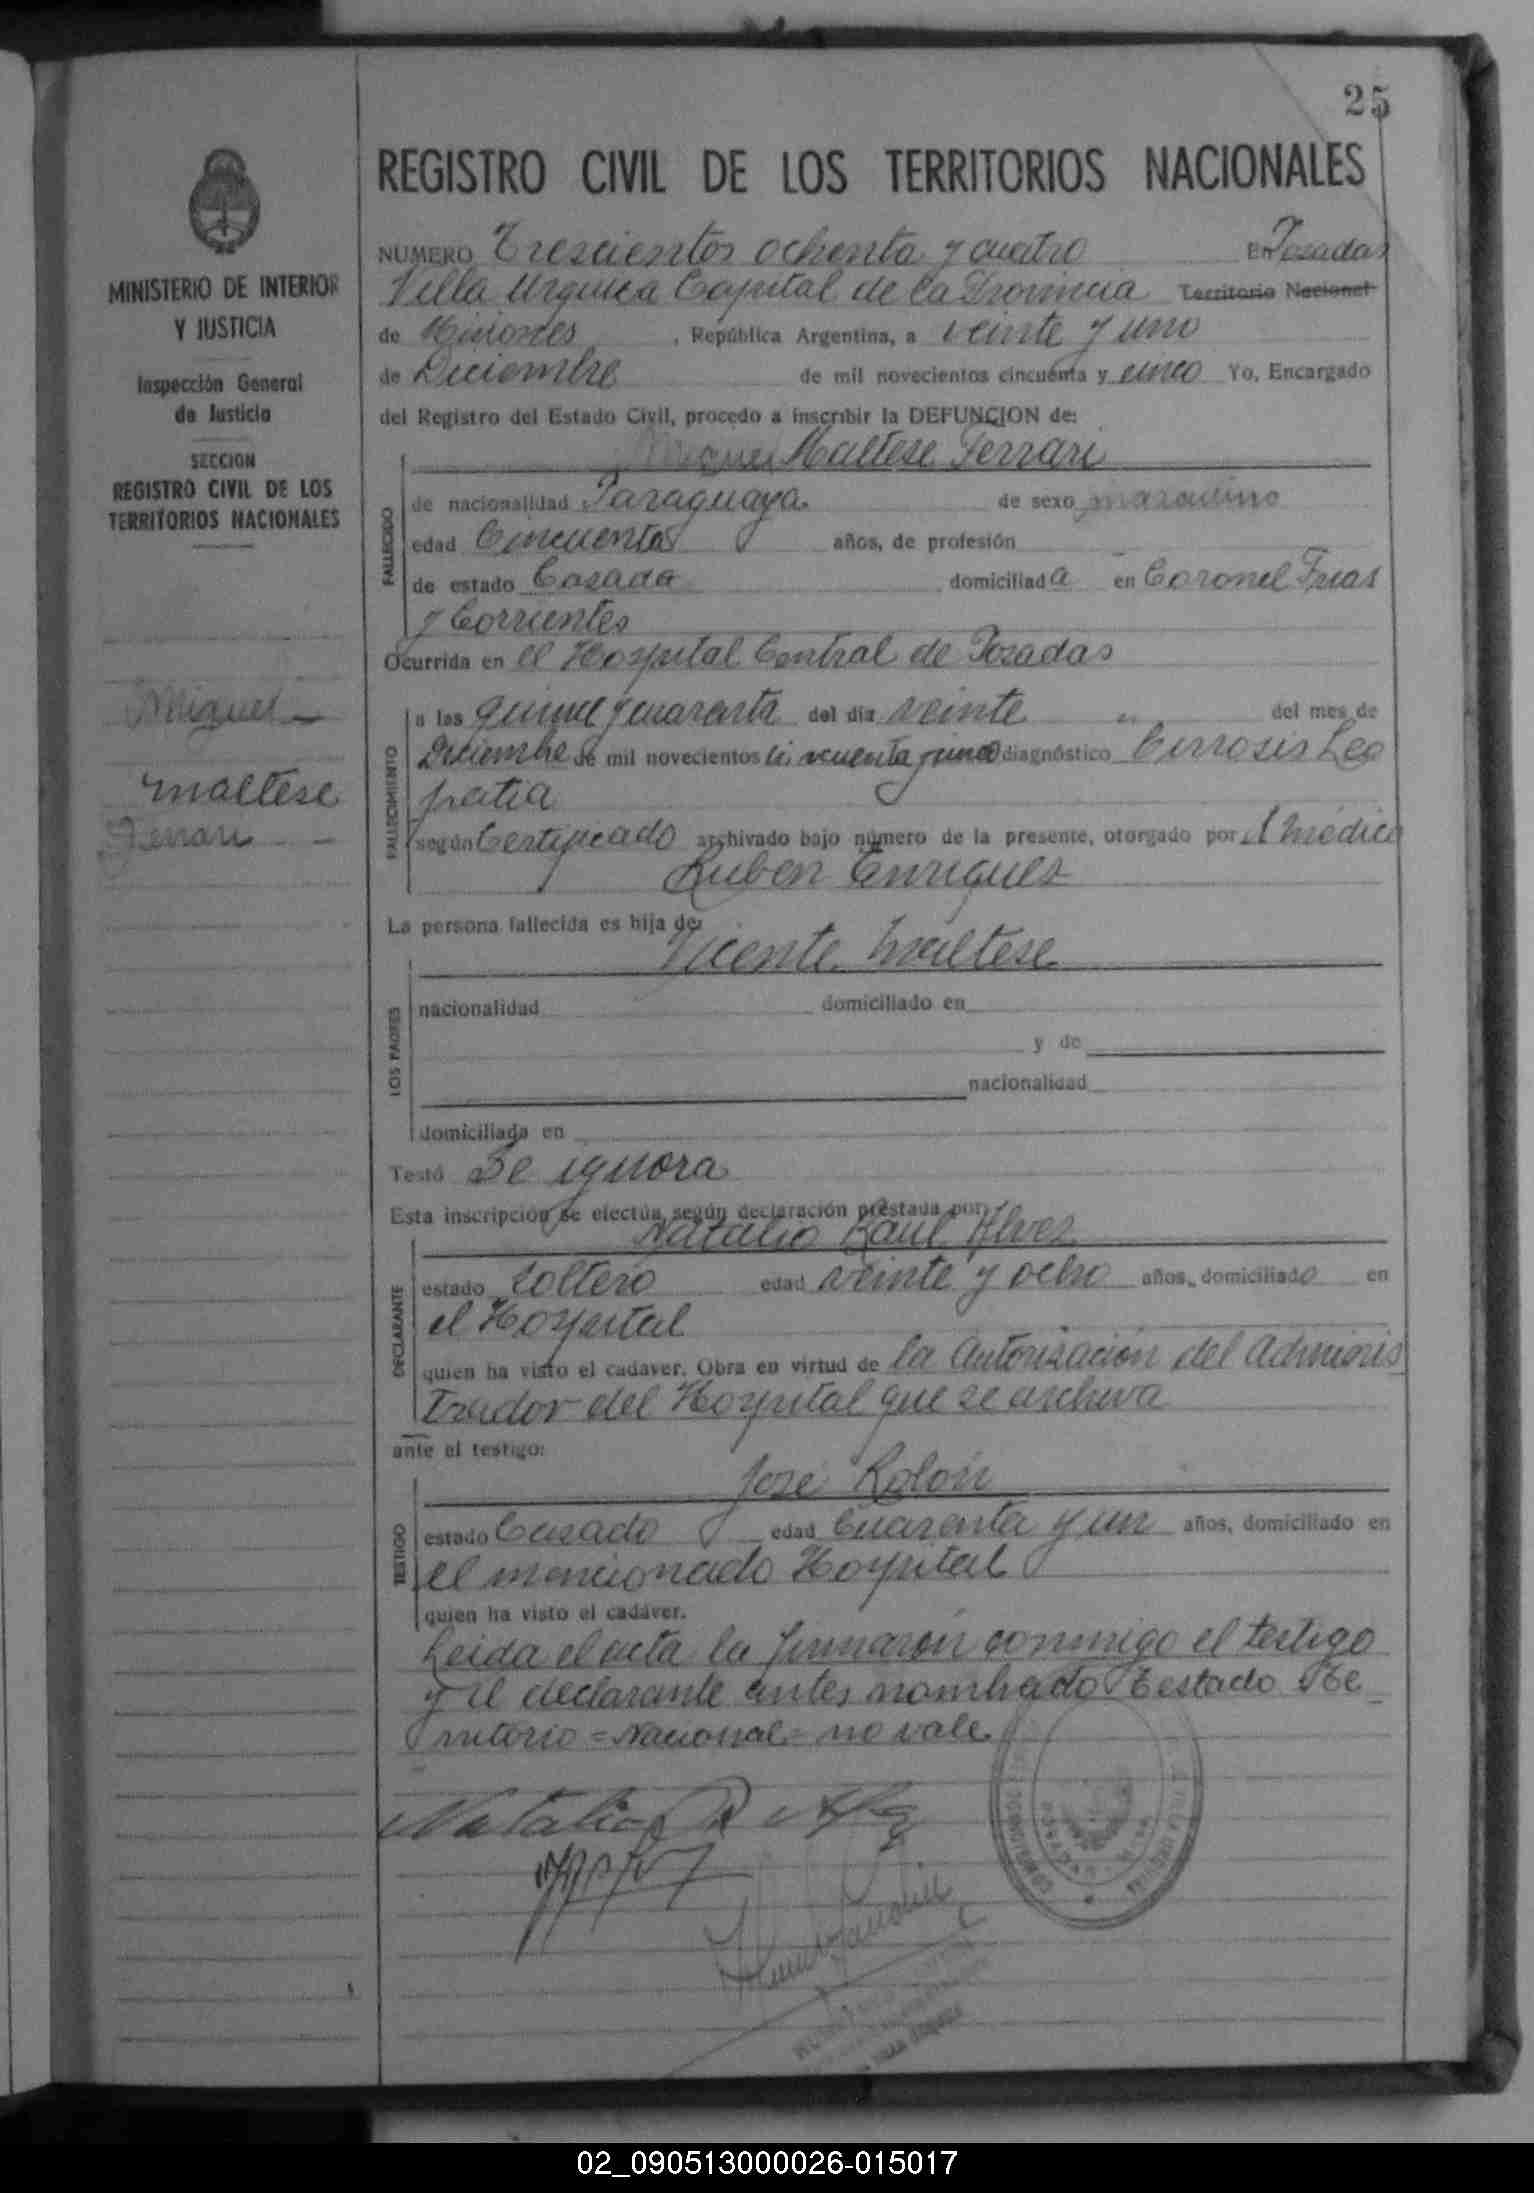 25
REGISTRO CIVIL DE LOS TERRITORIOS NACIONALES
MINISTERIO DE INTERIOR
Y JUSTICIA
Inspección General
de Justicia
SECCION
REGISTRO CIVIL DE LOS
TERRITORIOS NACIONALES
Miguel
Maltese
Ferrari
NUMERO Trescientos ochenta y cuatro En Posadas
Villa Urquiza Capital de la Provincia Territorio Nacional
de Misiones, República Argentina, a veinte y uno
de Diciembre de mil novecientos cincuenta y cinco Yo, Encargado
del Registro del Estado Civil, procedo a inscribir la DEFUNCION de:
Miguel Maltese Ferrari
FALLECIDO
de nacionalidad Paraguaya de sexo masculino
edad Cincuenta años, de profesión
de estado Casada domiciliada en Coronel Frias
y Corrientes
Ocurrida en el Hospital Central de Posadas
FALLECIMIENTO
a las quince y cuarenta del día veinte del mes de
Diciembre de mil novecientos cincuenta y cinco diagnóstico Cirrosis
patia
según Certificado archivado bajo número de la presente, otorgado por el médico
Ruben Enriquez
La persona fallecida es hija de:
Vicente Maltese
LOS PADRES
nacionalidad domiciliado en
y de
nacionalidad
domiciliada en
Testó Se ignora
Esta inscripción se efectúa según declaración prestada por:
Natalio Raul Alvez
DECLARANTE
estado soltero edad veinte y ocho años, domiciliado en
el Hospital
quien ha visto el cadaver. Obra en virtud de la autorización del Adminis
trador del Hospital que se archiva
ante el testigo:
José Rolón
TESTIGO
estado Casado edad Cuarenta y un años, domiciliado en
el mencionado Hospital
quien ha visto el cadáver.
Leida el acta la firmaron conmigo el testigo
y el declarante antes nombrado Testado Te-
rritorio = Nacional = no vale
Natalio R Alvez
02_090513000026-015017